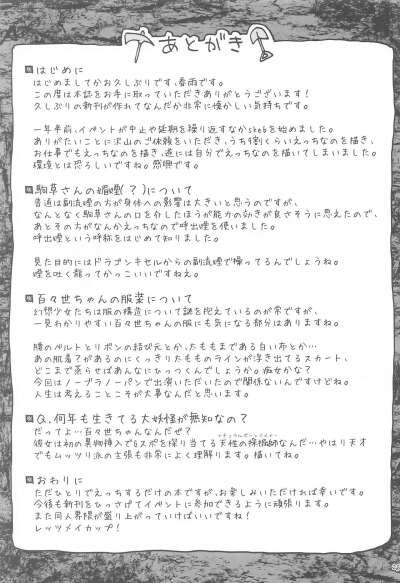 あとがき
はじめに
はじめましてかお久しぶりです、春雨です。
この度は本誌をお手に取っていただきありがとうございます！
久しぶりの新刊が作れてなんだか非常に懐かしい気持ちです。
一年半前、イベントが中止や延期を繰り返すなかskebを始めました。
ありがたいことに沢山のご依頼をいただき、うち9割くらいえっちなのを描き、
お仕事でもえっちなのを描き、遂には自分でえっちなのを描いてしまいました。
環境とは恐ろしいですね。感謝です。
駒草さんの媚煙(？)について
普通は副流煙の方が身体への影響は大きいと思うのですが、
なんとなく駒草さんの口を介したほうが能力の効きが良さそうに思えたので、
あとその方がなんかえっちなので呼出煙を使いました。
呼出煙という呼称をはじめて知りました。
見た目的にはドラゴンキセルからの副流煙で操ってるんでしょうね。
煙を吐く龍ってかっこいいですねえ。
百々世ちゃんの服装について
幻想少女たちは服の構造について謎を抱えているのが常ですが、
一見わかりやすい百々世ちゃんの服にも気になる部分はありますね。
腰のベルトとリボンの結び元とか、太ももまである白い布とか…
あの肌着？があるのにくっきり太もものラインが浮き出てるスカート、
どこまで蒸らせばあんなにひっつくんでしょうか。痴女かな？
今回はノーブラノーパンで出演いただいたので関係ないんですけどね。
人生は考えることこそが大事なんだと思います。
Q.何年も生きてる大妖怪が無知なの？
だってよ…百々世ちゃんなんだぜ？
彼女は初の異物挿入でGスポを探り当てる天性の採掘師なんだ…やはり天才
でもムッツリ派の主張も非常によく理解ります。描いてね。
おわりに
ただひとりでえっちするだけの本ですが、お楽しみいただければ幸いです。
今後も新刊をひっさげてイベントに参加できるように頑張ります。
また同人界隈が盛り上がっていけばいいですね！
レッツメイカップ！